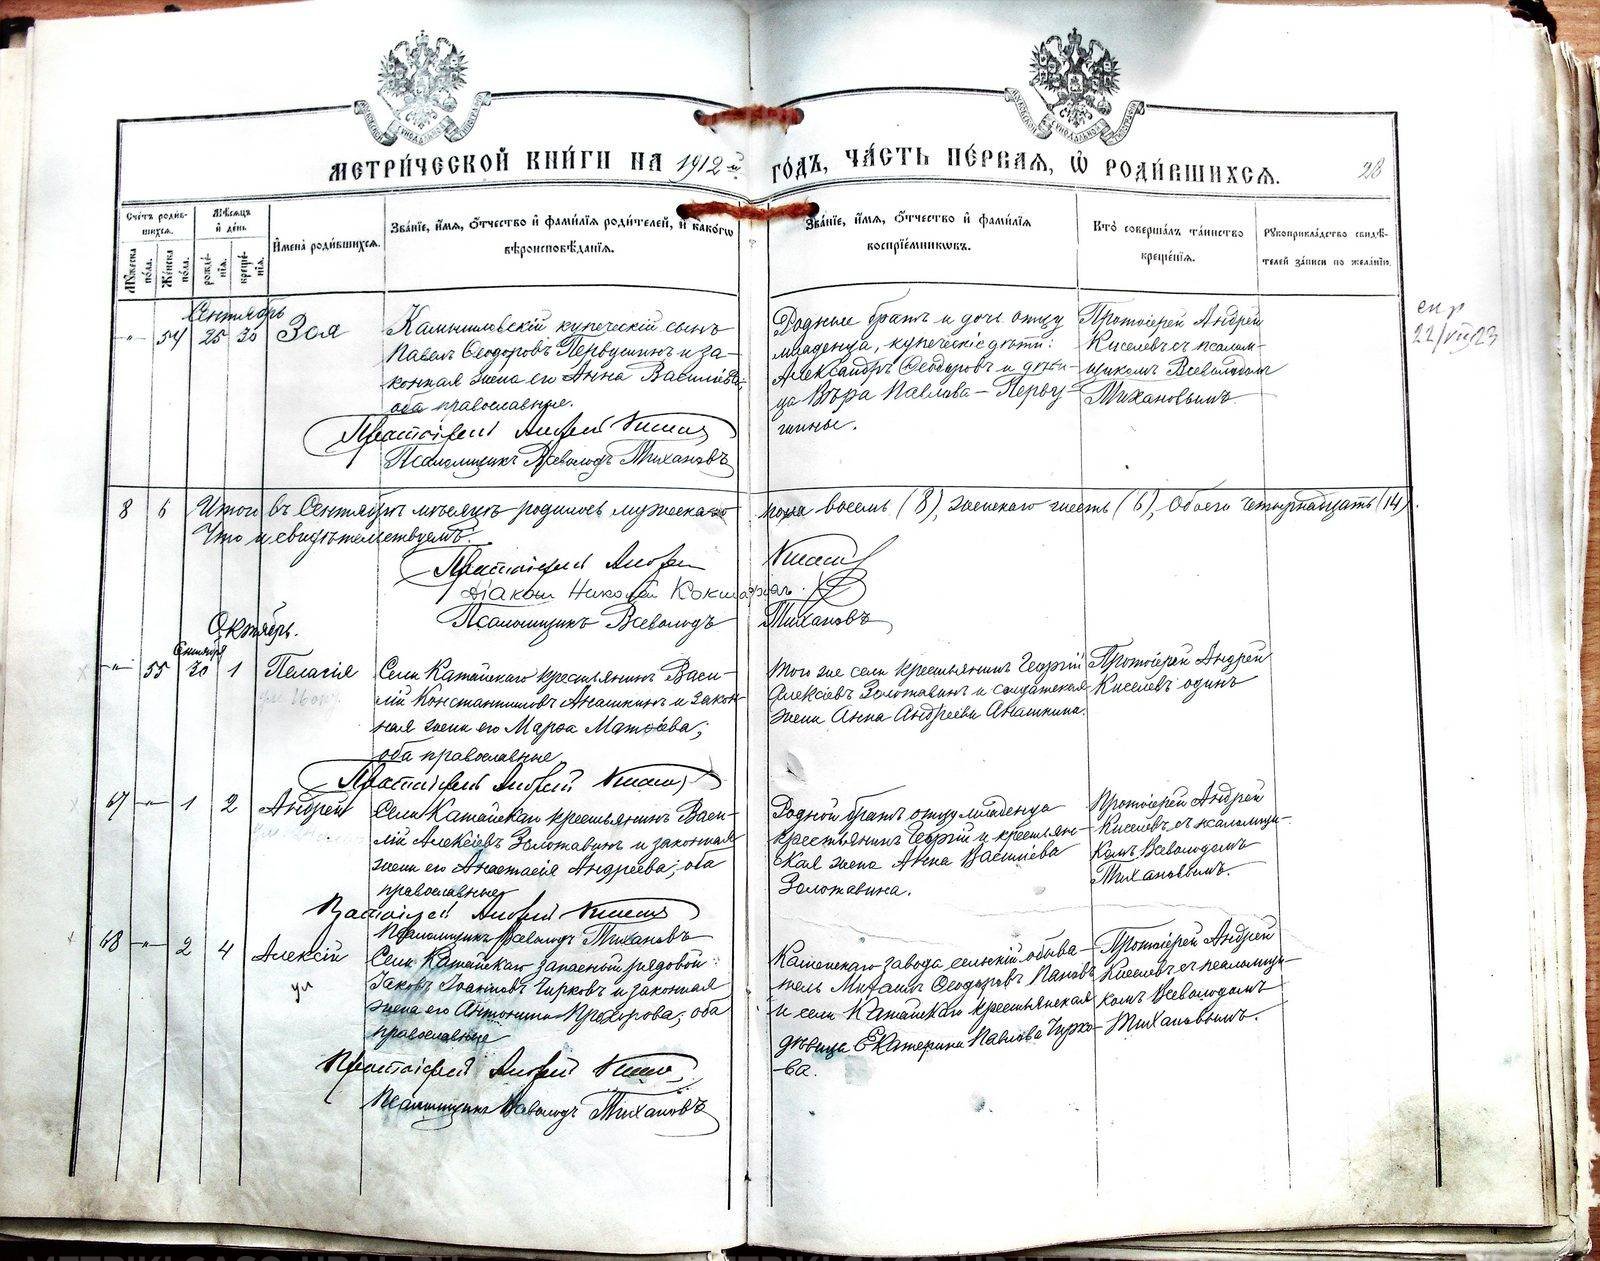 МЕТРИ́ЧЕСКОЙ КНИ́ГИ НА 1912й ГО́ДЪ, ЧА́СТЬ ПЕ́РВАЯ, Ѽ РОДИ́ВШИХСЯ.
28
Сче́тъ роди́в-
шихся.
Мꙋ́жеска по́ла.
Же́нска по́ла.
Мѣ́сяцъ
и̂ де́нь
рожде́-
нїя.
креще́-
нїя.
И̂мена̀ роди́вшихся.
Зва́нїе, и́мя, о́тчество и̂ фами́лїя роди́телей, и̂ како́гѡ
вѣроисповѣ́данїя.
Зва́нїе, и́мя, о́тчество и̂ фами́лїя
воспрїе́мниковъ.
Кто̀ соверша́лъ та́инство
креще́нїя.
Рꙋкоприкла́дство свидѣ́-
телей за́писи по жела́нїю.
Сентябрь
-"- 54 25 30 Зоя
Камышловскій купеческій сынъ
Павелъ Ѳеодоровъ Первушинъ и за-
конная жена его Анна Васильева,
оба православные.
Протоіерей Андрей Киселев
Псаломщикъ Всеволодъ Тихановъ
Родные братъ и дочь отцу
младенца, купеческіе дѣти:
Александръ Ѳеодоровъ и дѣви-
ца Вѣра Павлова - Перву-
шины.
Протоіерей Андрей
Киселевъ съ псалом-
щикомъ Всеволодомъ
Тихановымъ
22/VII 23
8 6 Итого въ Сентябрѣ мѣсяцѣ родилось мужеска-го пола восемь (8), женскаго шесть (6), Обоего четырнадцать (14).
Что и свидѣтельствуемъ.
Протоіерей Андрей Киселев
Діаконъ Николай
Псаломщикъ Всеволодъ Тихановъ
Октябрь.
Сентября
-"- 55 30 1 Пелагія
Села Катайскаго крестьянинъ Васи-
лій Константиновъ Анашкинъ и закон-
ная жена его Марѳа Матѳіева,
оба православные
Протоіерей Андрей Киселев
Того же села крестьянинъ Георгій
Алексіевъ Золотавинъ и солдатская
жена Анна Андреева Анашкина.
Протоіерей Андрей
Киселевъ одинъ
67 -"- 1 2 Андрей
Села Катайскаго крестьянинъ Васи-
лій Алексіевъ Золотавинъ и законная
жена его Анастасія Андреева, оба
православные
Протоіерей Андрей Киселев
Псаломщикъ Всеволодъ Тихановъ
Родной братъ отцу младенца
крестьянинъ Георгій и крестьян-
ская жена Анна Васильева
Золотавина.
Протоіерей Андрей
Киселевъ съ псаломщи-
комъ Всеволодомъ
Тихановымъ.
68 -"- 2 4 Алексій
ум
Села Катайскаго запасной рядовой
Іаковъ Іоанновъ Чирковъ и законная
жена его Антонина Прохорова, оба
православные
Протоіерей Андрей Киселев
Псаломщикъ Всеволодъ Тихановъ
Каменскаго завода сельскій обыва-
тель Михаилъ Ѳеодоровъ Пановъ
и села Катайскаго крестьянская
дѣвица Екатерина Павлова Чирко-
ва.
Протоіерей Андрей
Киселевъ съ псаломщи-
комъ Всеволодомъ
Тихановымъ.